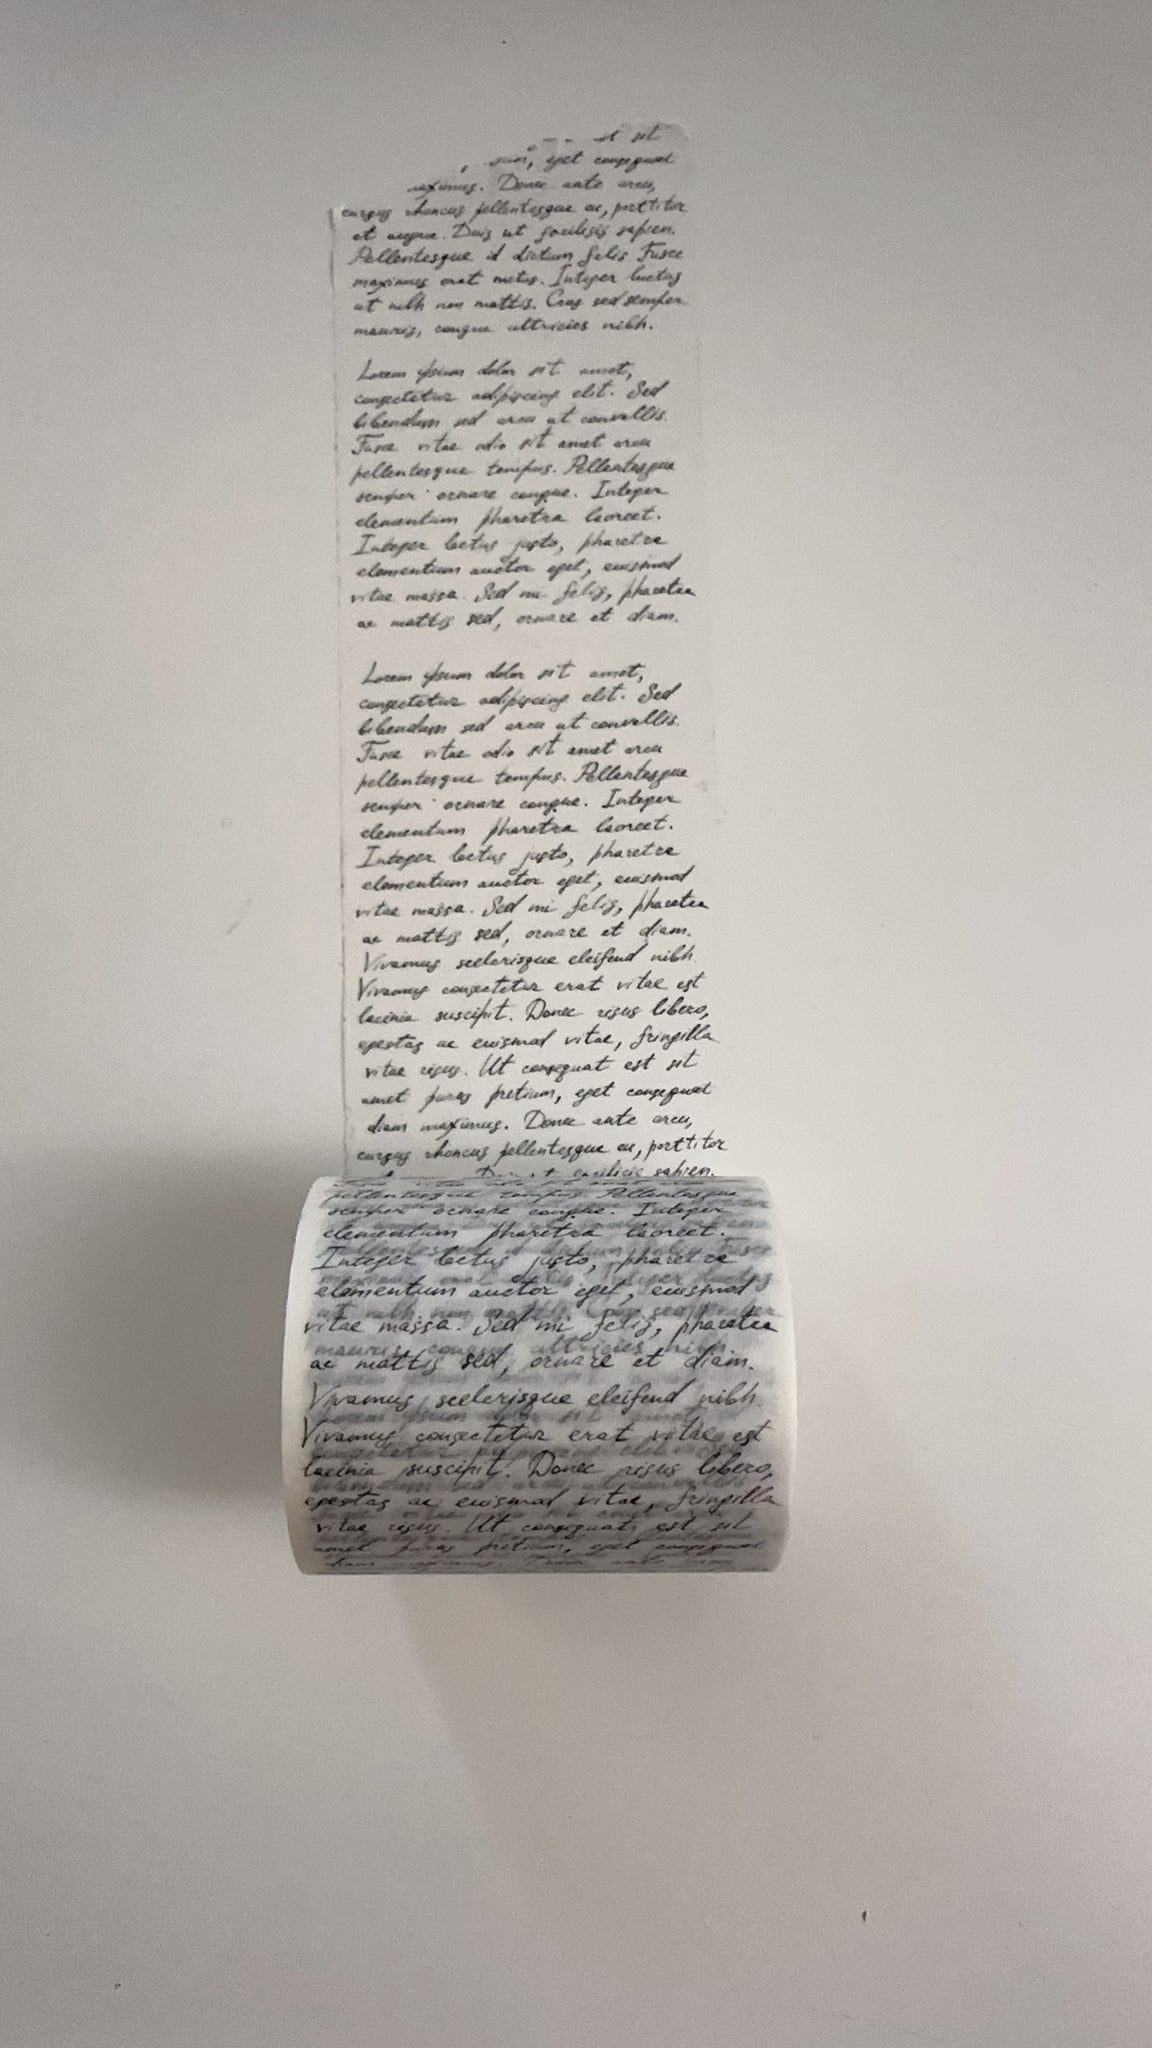 et sit
eget consequat
maximus. Donec ante arcu,
cursus rhoncus pellentesque eu, porttitor
et augue. Duis ut facilisis sapien.
Pellentesque id dictum felis. Fusce
maximus erat metus. Integer luctus
ut nibh non mattis. Cras sed semper
mauris, congue ultricies nibh.
Lorem ipsum dolor sit amet,
consectetur adipiscing elit. Sed
bibendum sed arcu ut convallis.
Fusce vitae odio sit amet arcu
pellentesque tempus. Pellentesque
semper ornare congue. Integer
elementum pharetra laoreet.
Integer lectus justo, pharetra
elementum auctor eget, euismod
vitae massa. Sed mi felis, pharetra
ac mattis sed, ornare et diam.
Lorem ipsum dolor sit amet,
consectetur adipiscing elit. Sed
bibendum sed arcu ut convallis.
Fusce vitae odio sit amet arcu
pellentesque tempus. Pellentesque
semper ornare congue. Integer
elementum pharetra laoreet.
Integer lectus justo, pharetra
elementum auctor eget, euismod
vitae massa. Sed mi felis, pharetra
ac mattis sed, ornare et diam.
Vivamus scelerisque eleifend nibh.
Vivamus consectetur erat vitae est
lacinia suscipit. Donec risus libero,
egestas ac euismod vitae, fringilla
vitae risus. Ut consequat est sit
amet purus pretium, eget consequat
diam maximus. Donec ante arcu,
cursus rhoncus pellentesque eu, porttitor
facilisis sapien.
pellentesque tempus. Pellentesque
semper ornare congue. Integer
elementum pharetra laoreet.
Integer lectus justo, pharetra
elementum auctor eget, euismod
vitae massa. Sed mi felis, pharetra
ac mattis sed, ornare et diam.
Vivamus scelerisque eleifend nibh.
Vivamus consectetur erat vitae est
lacinia suscipit. Donec risus libero,
egestas ac euismod vitae, fringilla
vitae risus. Ut consequat est sit
amet purus pretium, eget consequat
diam maximus. Donec ante arcu